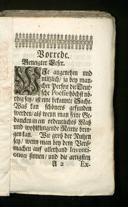 Vorrede.
Geneigter Leser.
Wie angenehm und
nützlich, ja bey man-
cher Profession die Deut-
sche Poesie höchst nö-
thig sey, ist eine bekannte Sache.
Was kan schöners gefunden
werden als wenn man seine Ge-
dancken in ein ordentliches Maß
und wohlklingende Reime brin-
gen kan. Wie groß der Nutzen
sey, wenn man bey dem Vers-
machen auf allerhand
sinnen, und die artigsten
A 2 Ex-